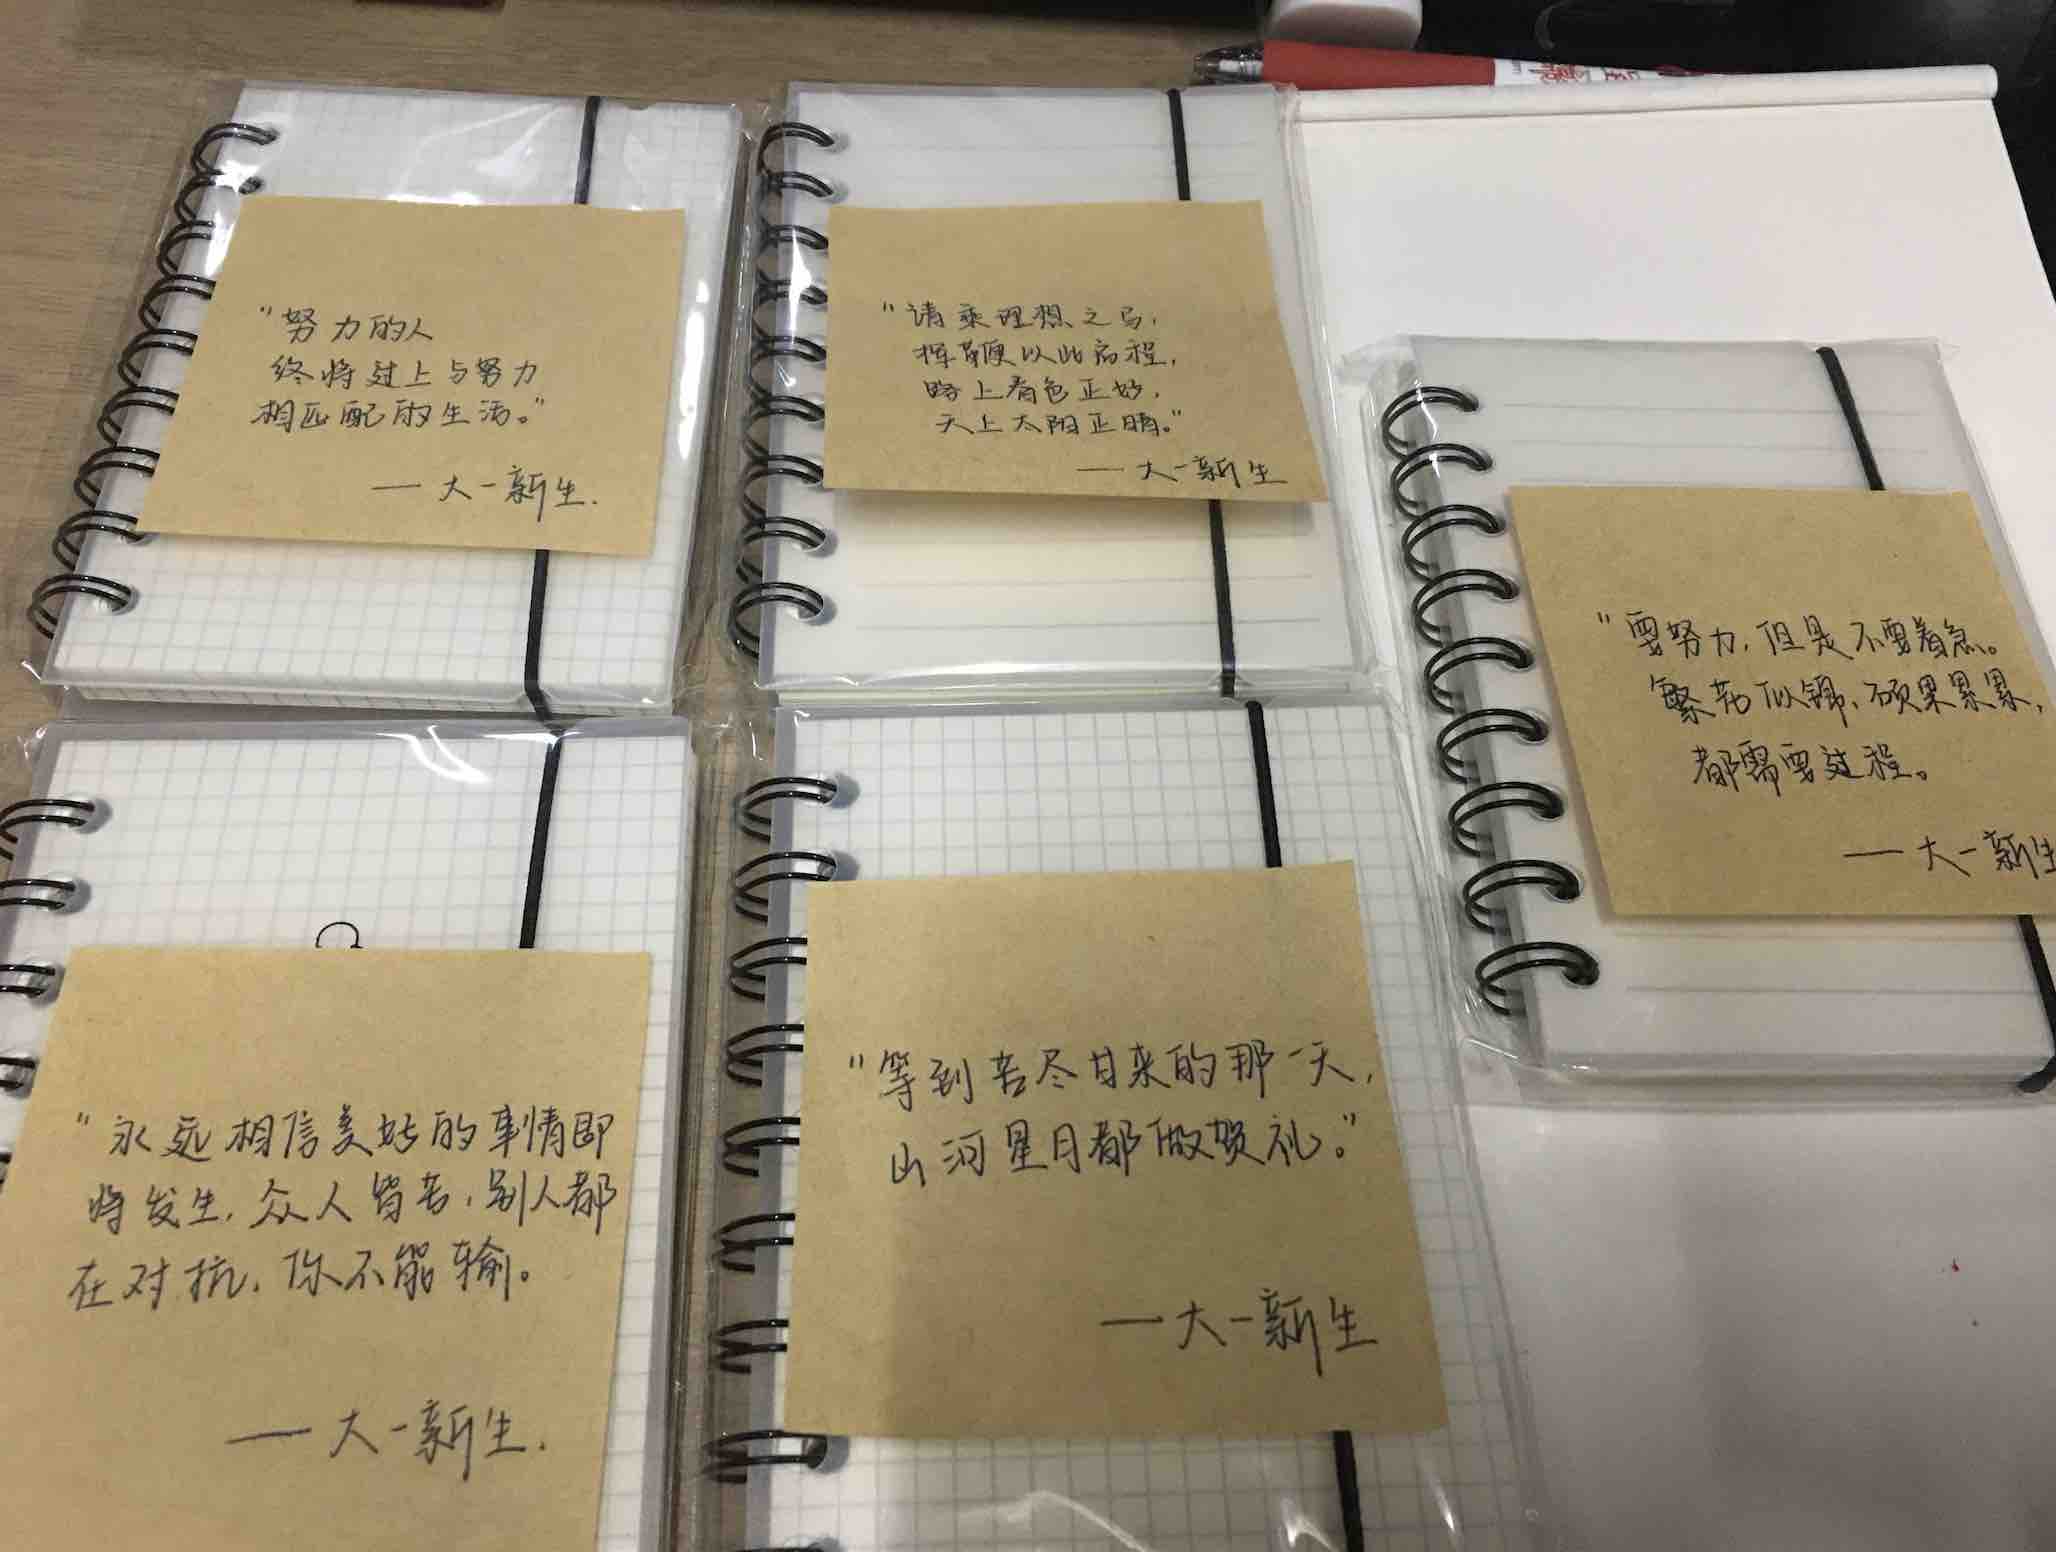 "努力的人
终将过上与努力
相匹配的生活。"
— 大一新生.
"请乘理想之马,
挥鞭以此启程,
路上春色正好,
天上太阳正晴。"
— 大一新生
"要努力,但是不要着急。
繁花似锦,硕果累累,
都需要过程。
— 大一新生
"永远相信美好的事情即
将发生,众人皆苦,别人都
在对抗,你不能输。
— 大一新生.
"等到苦尽甘来的那一天,
山河星月都做贺礼。"
— 大一新生